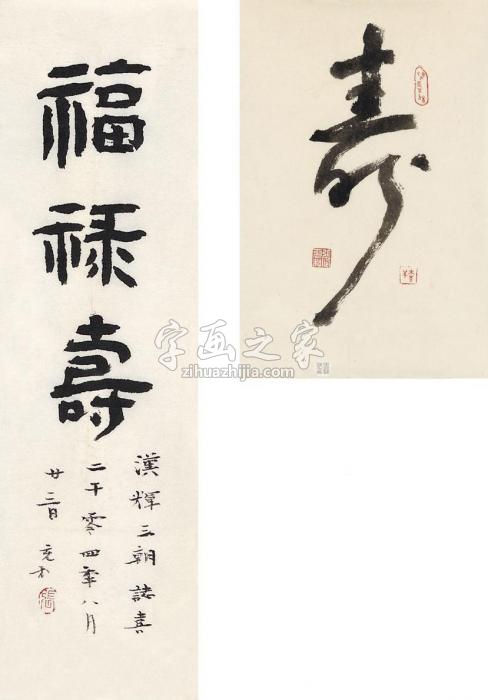 福
禄
壽
漢輝三朝誌喜
二千零四年八月
廿三日 充和
寿
字画之家
zihuazhijia.com